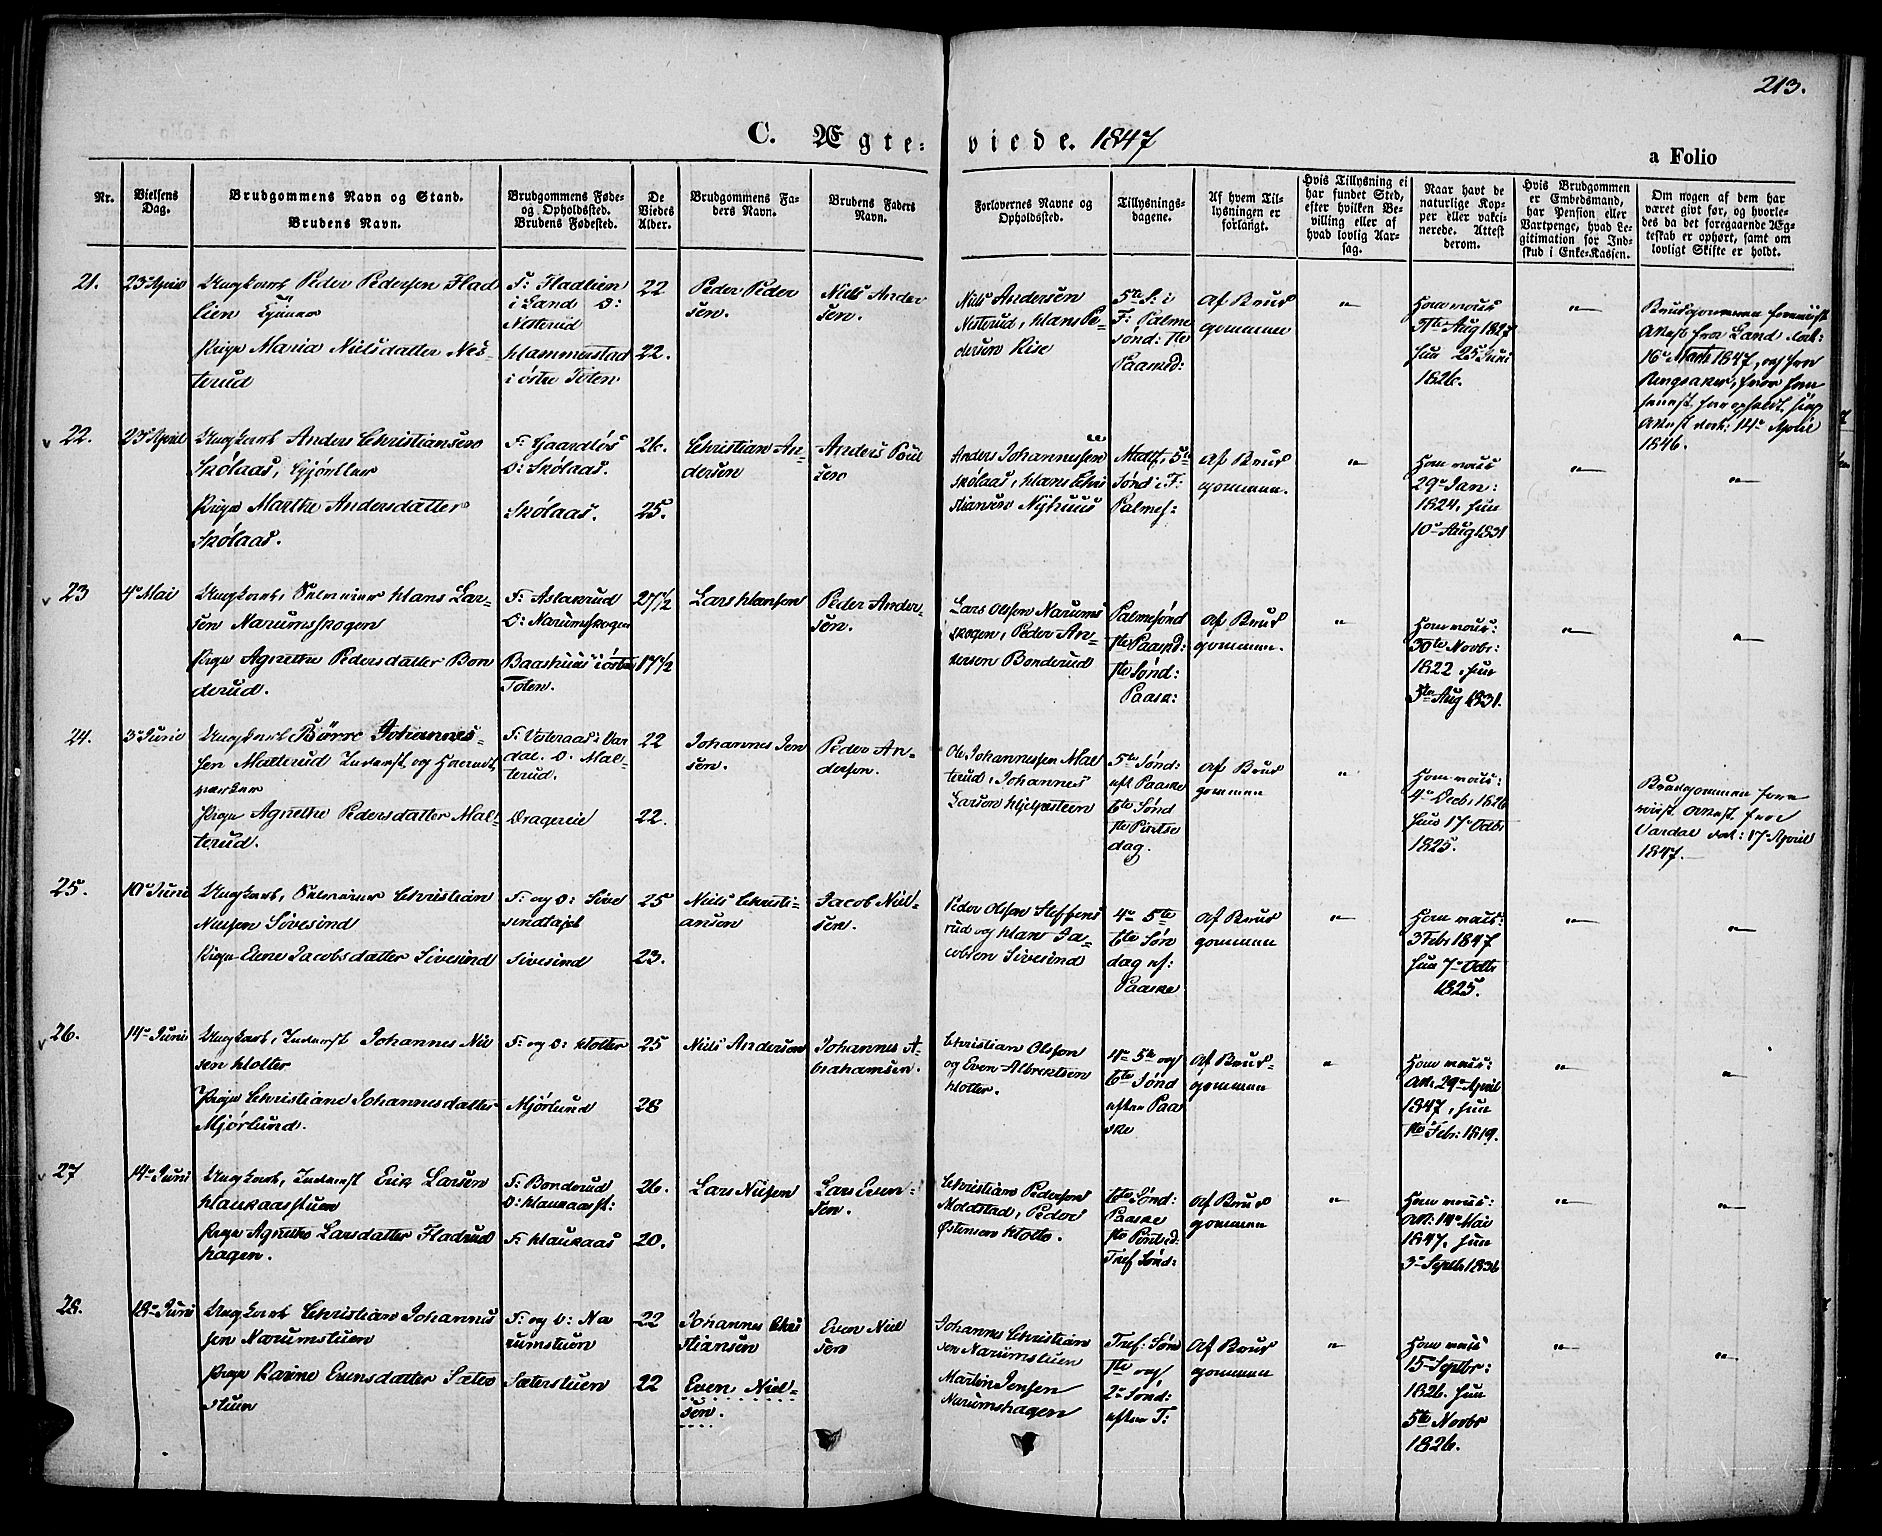 213.
C. Ægte-viede. 1847
a Folio
Nr.
Vielsens Dag.
Brudgommens Navn og Stand.
Brudens Navn.
Brudgommens Føde- og Opholdssted. Brudens Fødested.
De Viedes Alder.
Brudgommens Faders Navn.
Brudens Faders Navn.
Forlovernes Navne og Opholdssted.
Tillysnings-dagene.
Af hvem Tillysningen er forlangt.
Hvis Tillysning ei har fundet Sted, efter hvilken Bevilling eller af hvad lovlig Aarsag.
Naar havt de naturlige Kopper eller vaksinerede. Attest derom.
Hvis Brudgommen er Embedsmand, har Pension eller Vartpenge, hvad Legitimation for Indskud i Enke-Kassen.
Om nogen af dem har været givt før, og hvorledes da det foregaaende Ægteskab er ophørt, samt om lovligt Skifte er holdt.
21.
23 April
Ungkarl Peder Pedersen Flad
lien
Pige Maria Nielsdatter Nes-
terud
F: Fladlien
i Land O:
Nesterud
Hammerstad
i østre Toten
22
22.
Peder Peder
sen.
Niels Ander
sen.
Niels Andersen
Nesterud, Hans Pe-
dersen Rise
5te S: i
F: Palme
sønd: 1te
Paaskd:
af Brud
gommen
"
Ham vacc:
Aug 1827
hun 25 Juni
1826.
"
Brudgommen foreviist
Attest fra Land dat:
16 Marts 1847, og fra
Ringsaker, hvor han
senest har opholdt sig
Attest dat: 14 April
1846.
22.
23 April
Ungkarl Anders Christiansen
Skølaas,
Pige Marthe Andersdatter
Skølaas.
F: Gaardløs
O: Skølaas.
Skølaas.
26.
25.
Christian An-
dersen
Anders Poul
sen
Anders Johannesen
Skølaas, Hans Chri
stiansen Nyhuus
5te
Sønd: i F:
Palmes:
af Brud
gommen.
"
Ham vacc:
29 Jan:
1824, hun
10 Aug 1831
"
"
23
4 Mai
Ungkarl, Selveier Hans Lar-
sen Narumsskogen
Pige Agnethe Pedersdatter Bon
derud.
F: Aslaksrud
O: Narumsskogen
Baashuus i østre
Toten.
27 1/2
17 1/2
Lars Hansen
Peder Ander-
sen.
Lars Olsen Narums
skogen, Peder An-
dersen Bonderud
Palmesønd
1te Paaskd:
1te Sønd:
Paaske:
af Brud
gommen.
"
Ham vacc:
30te Novbr:
1822, hun
Aug 1831.
"
"
24.
3 Juni
Ungkarl Børre Johannes-
sen Malterud Inderst og Haand-
værker
Pige Agnethe Pedersdatter Mal-
terud.
F: Vesteraas i Var
dal. O: Mal-
terud.
Drageeie
22
22.
Johannes Jen
sen.
Peder An-
dersen.
Ole Johannessen Mal
terud, Johannes
Larsen Hjelpesteen
5te Sønd:
eft Paaske
6te Sønd
1te Pintse
dag.
af Brud
gommen
"
Ham vacc:
4 Decb: 1826
hun 17 Octbr
1825.
Brudgommen fore
viist Attest fra
Vardal dat: 17 April
1847.
25.
10 Juni
Ungkarl, Selveier Christian
Nielsen Sivesind
Pige Elene Jacobsdatter Sivesind
F: og O: Sive
sindløjet
Sivesind
25
23.
Niels Christi-
ansen
Jacob Niel-
sen.
Peder Olsen Steffens
rud og Hans Ja-
cobsen Sivesind
4 5te
6te Søn
dag ef:
Paaske
af Brud
gommen
"
Ham vacc:
3 Febr 1847
hun 7 Octbr
1825.
"
"
26.
14 Juni
Ungkarl, Inderst Johannes Niel
sen Klotter
Pige Christiane Johannesdatter
Mjørlund.
F: og O: Klotter
Mjørlund
25
28
Niels Andersen
Johannes A-
brahamsen.
Christian Olsen
og Even Albrektsen
Klotter.
4 5te og
6te Sønd
efter Paa
ske
af Brud-
gommen
"
Ham vacc:
Att: 29 April
1847, hun
1te Febr: 1819.
"
"
27
14 Juni
Ungkarl, Inderst Erik Larsen
Haukaasstuen
Pige Agnethe Larsdatter Fladrud
hagen.
F: Bonderud
O: Haukaasst:
F: Haukaas
26.
20.
Lars Nielsen
Lars Even-
sen.
Christian Pedersen
Moldstad, Peder
Østensen Klotte.
6te Sønd:
Paaske
1te Pintsed:
Tref Sønd:
af Brud
gommen
"
Ham vacc:
Att: 14 Mai
1847, hun
3 Septb: 1836
"
"
28.
18 Juni
Ungkarl Christian Johannes
sen Narumstuen
Pige Karine Evensdatter Sæter
stuen
F: og O: Na
rumstuen
Sæterstuen
22
22
Johannes Chri
stiansen
Even Niel-
sen.
Even Niel
sen
Johannes Christian
sen Narumstuen
Martin Jensen
Narumshagen
Tref: Søn
1te og
2 Sønd:
efter T:
af Brud
gommen
"
Ham vacc:
15 Septbr:
1826. hun
5te Novbr
1826.
"
"